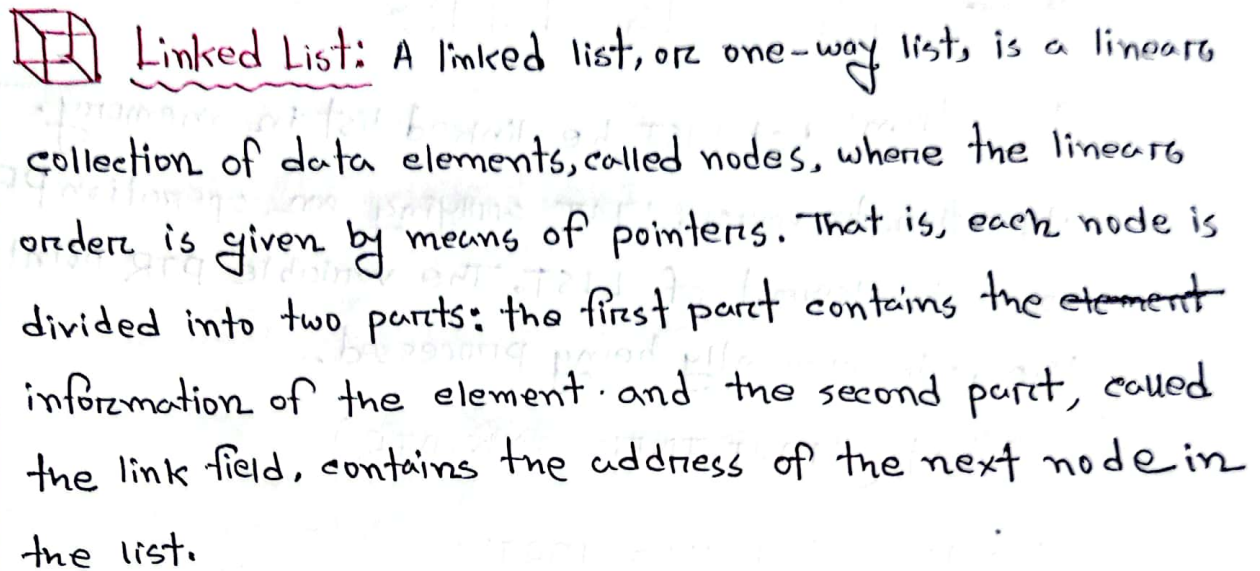 Linked List: A linked list, or one-way list, is a linear
collection of data elements, called nodes, where the linear
order is given by means of pointers. That is, each node is
divided into two parts: the first part contains the element
information of the element. and the second part, called
the link field, contains the address of the next node in
the list.